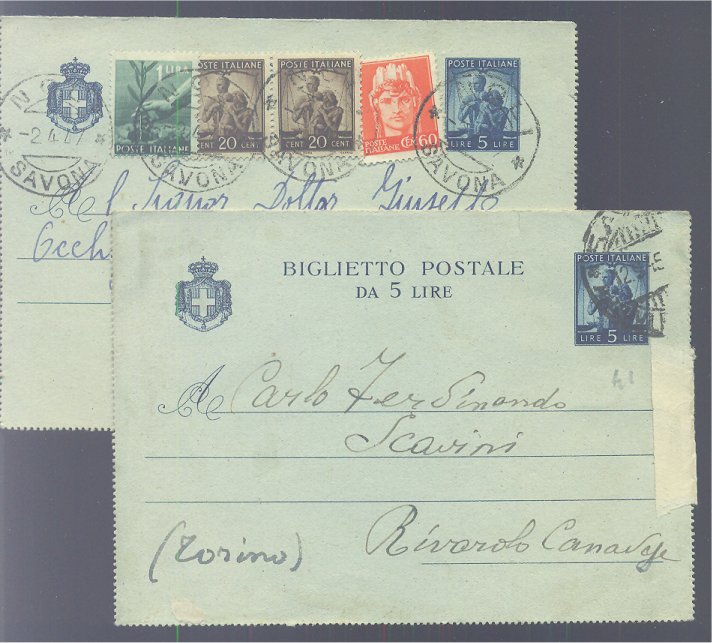 1 LIRA
POSTE ITALIANE
20 CENT
POSTE ITALIANE
CENT 20 CENT
POSTE ITALIANE CENT. 60
POSTE ITALIANE
LIRE 5 LIRE
SAVONA
SAVONA
SAVONA
SAVONA
Al Signor Dottor Giuseppe
Occh
BIGLIETTO POSTALE
DA 5 LIRE
POSTE ITALIANE
LIRE 5 LIRE
41
A Carlo Ferdinando
Scavini
(Torino)
Rivarolo Canavese